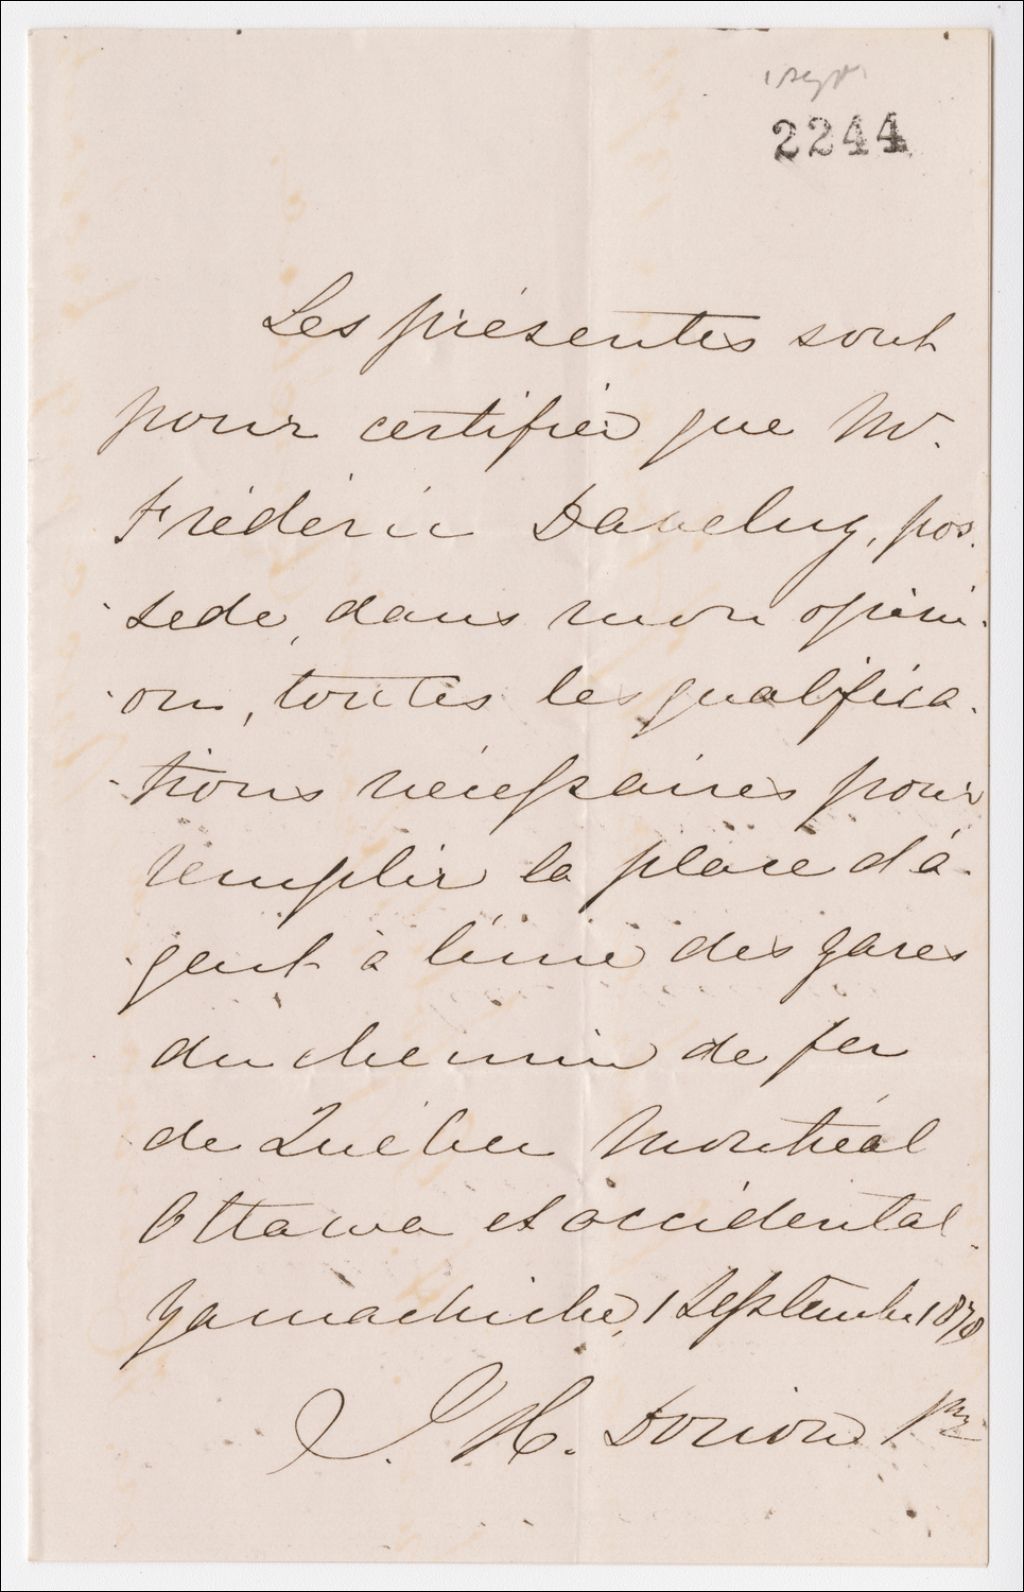 2244
Les présentes sont
pour certifier que Mr.
Fréderic Daveluy, pos.
sede, dans mon opini-
-on, toutes les qualifica-
-tions nécessaires pour
remplir la place d'a-
-gent à l'une des gares
du chemin de fer
de Québec Montréal
Ottawa et occidental.
Yamachiche, 1 Septembre 1878
J. H. Dorion Ptre